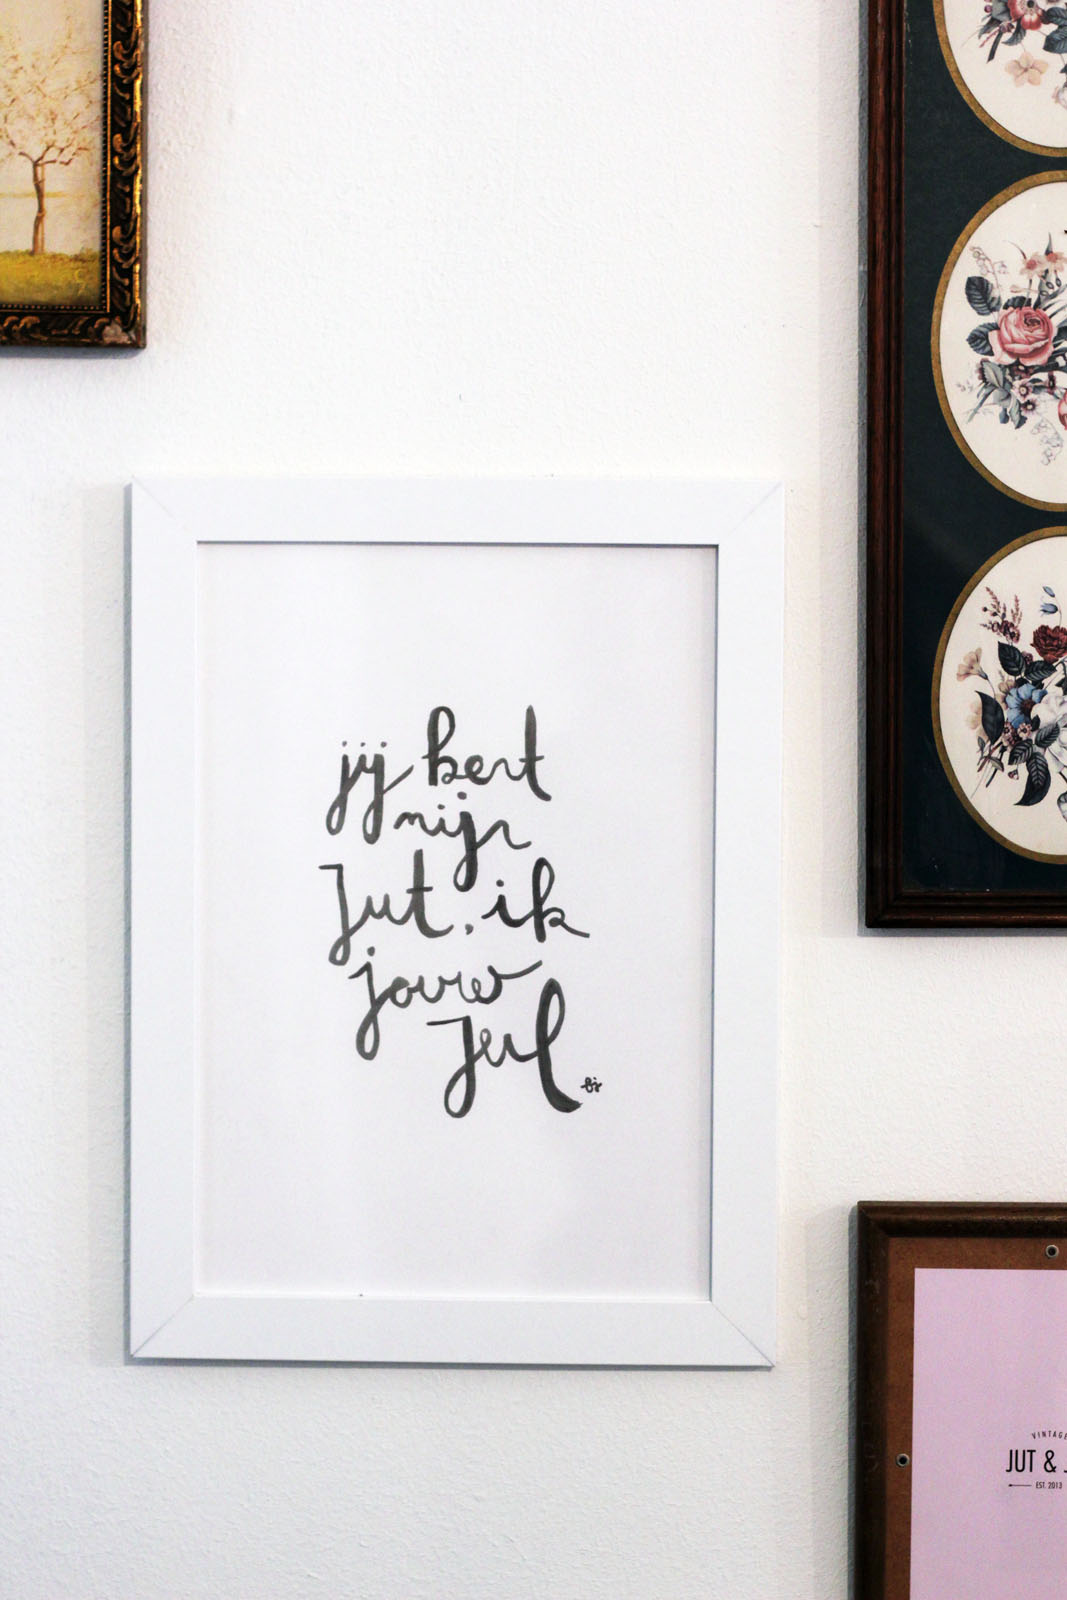 jij bent
mijn
Jut, ik
jouw
Jul
bj
VINTAGE
JUT & J
EST. 2013